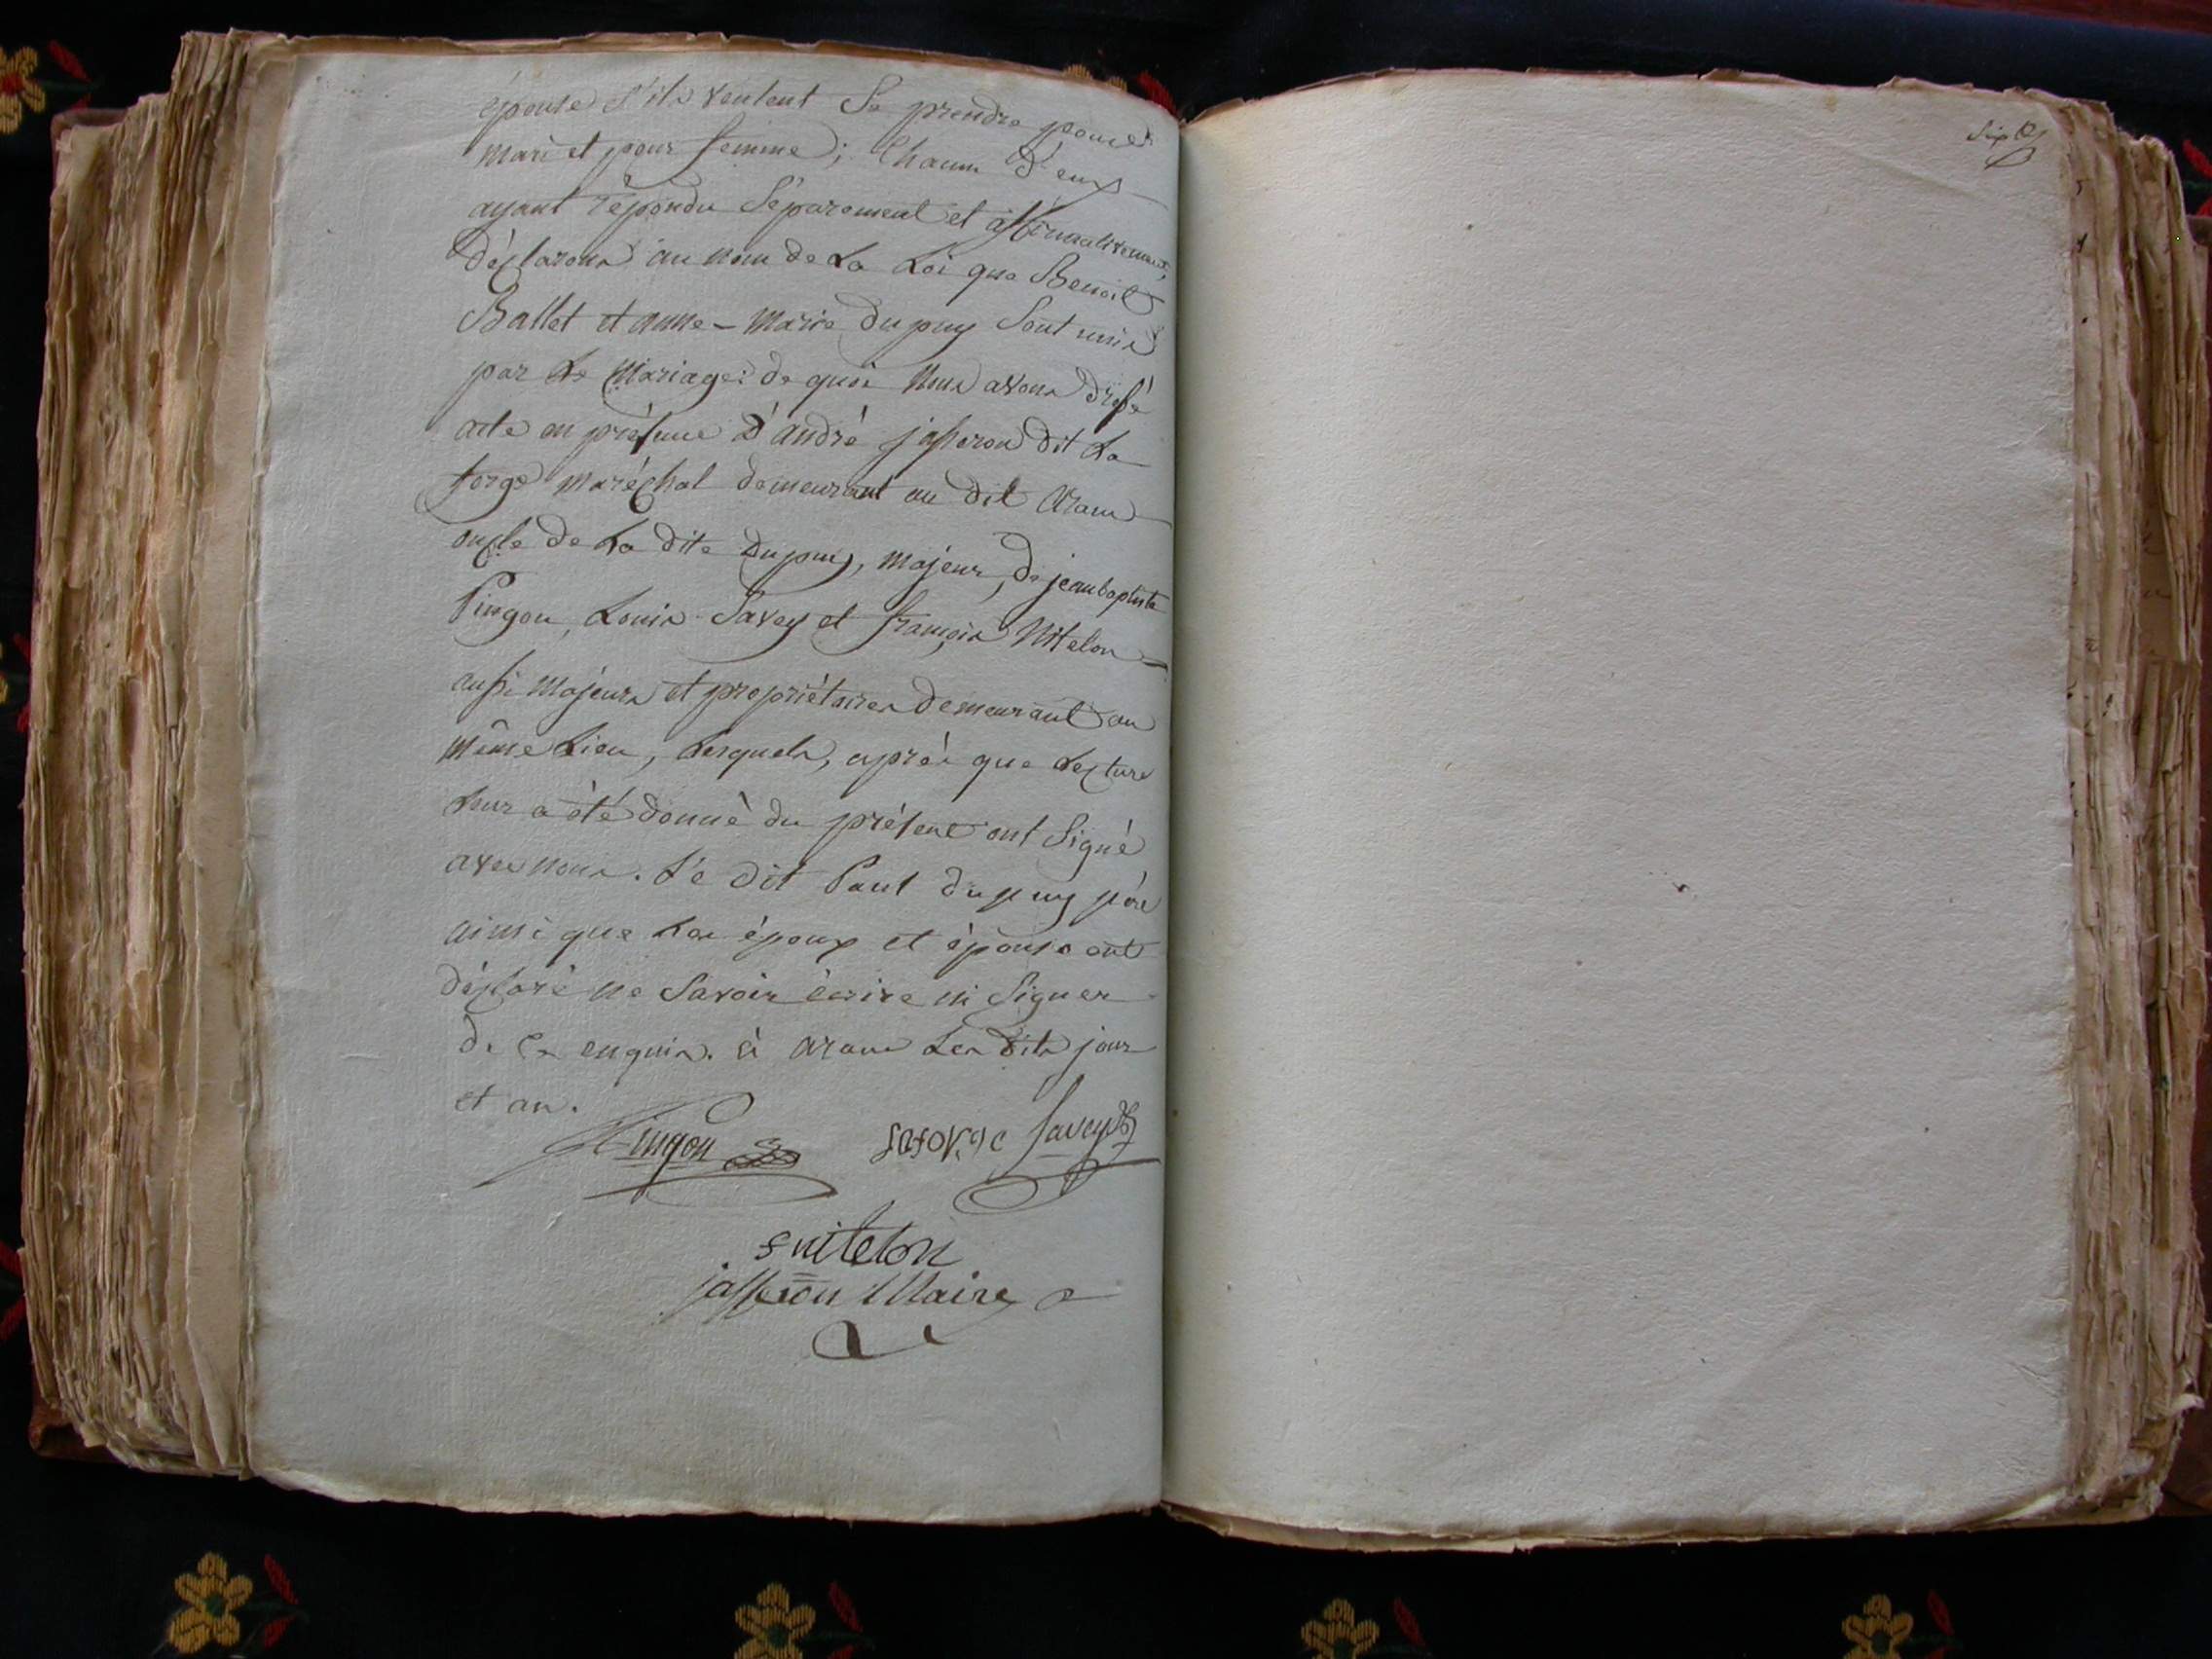 épouse s'ils veulent se prendre pour
mari et pour femme; chacun d'eux
ayant répondu séparement et affirmativement,
déclarons au nom de la Loi que Benoit
Ballet et anne-Marie Dupuy sont unis
par le Mariage: de quoi nous avons dressé
acte en présence d'andré jasseron dit La
forge maréchal demeurant au dit Aranc
oncle de la dite Dupuy, majeur, de jean baptiste
Pingon, Louis Savey et françois Nitelon
aussi majeurs et propriétaires demeurant au
même Lieu, Lesquels, après que Lecture
leur a été donné du présent ont signé
avec nous. Le dit Paul Dupuy père
ainsi que les époux et épouse ont
déclaré ne savoir écrire ni signer
de ce enquis. à aranc Les dits jour
et an.
Pingon laforge Savey
f nitelon
jasseron Maire